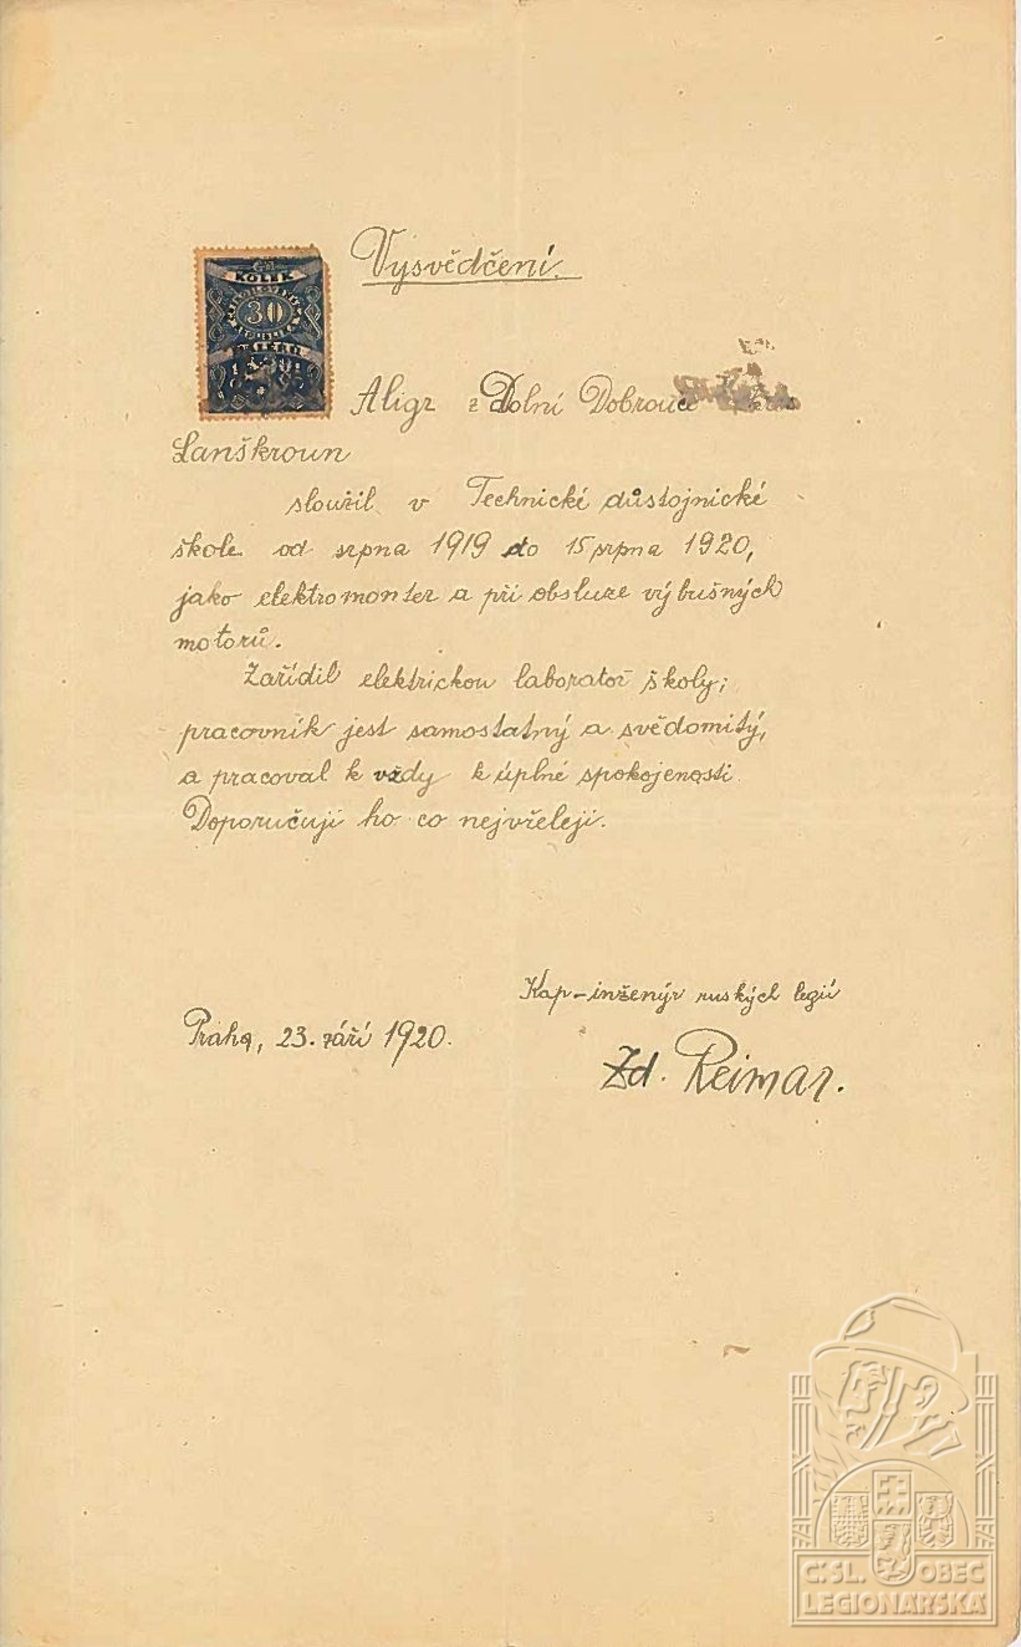 Vysvědčení.
KOLEK
30
Aligr z Dolní Dobrouče
Lanškroun
sloužil v Technické důstojnické
škole od srpna 1919 do 15 srpna 1920,
jako elektromonter a při obsluze výbušných
motorů.
Zařídil elektrickou laboratoř školy;
pracovník jest samostatný a svědomitý,
a pracoval k vždy k úplné spokojenosti.
Doporučuji ho co nejvřeleji.
Kap-inženýr ruských legií
Praha, 23. září 1920.
Zd. Reimar.
Č.SL. OBEC
LEGIONÁŘSKÁ